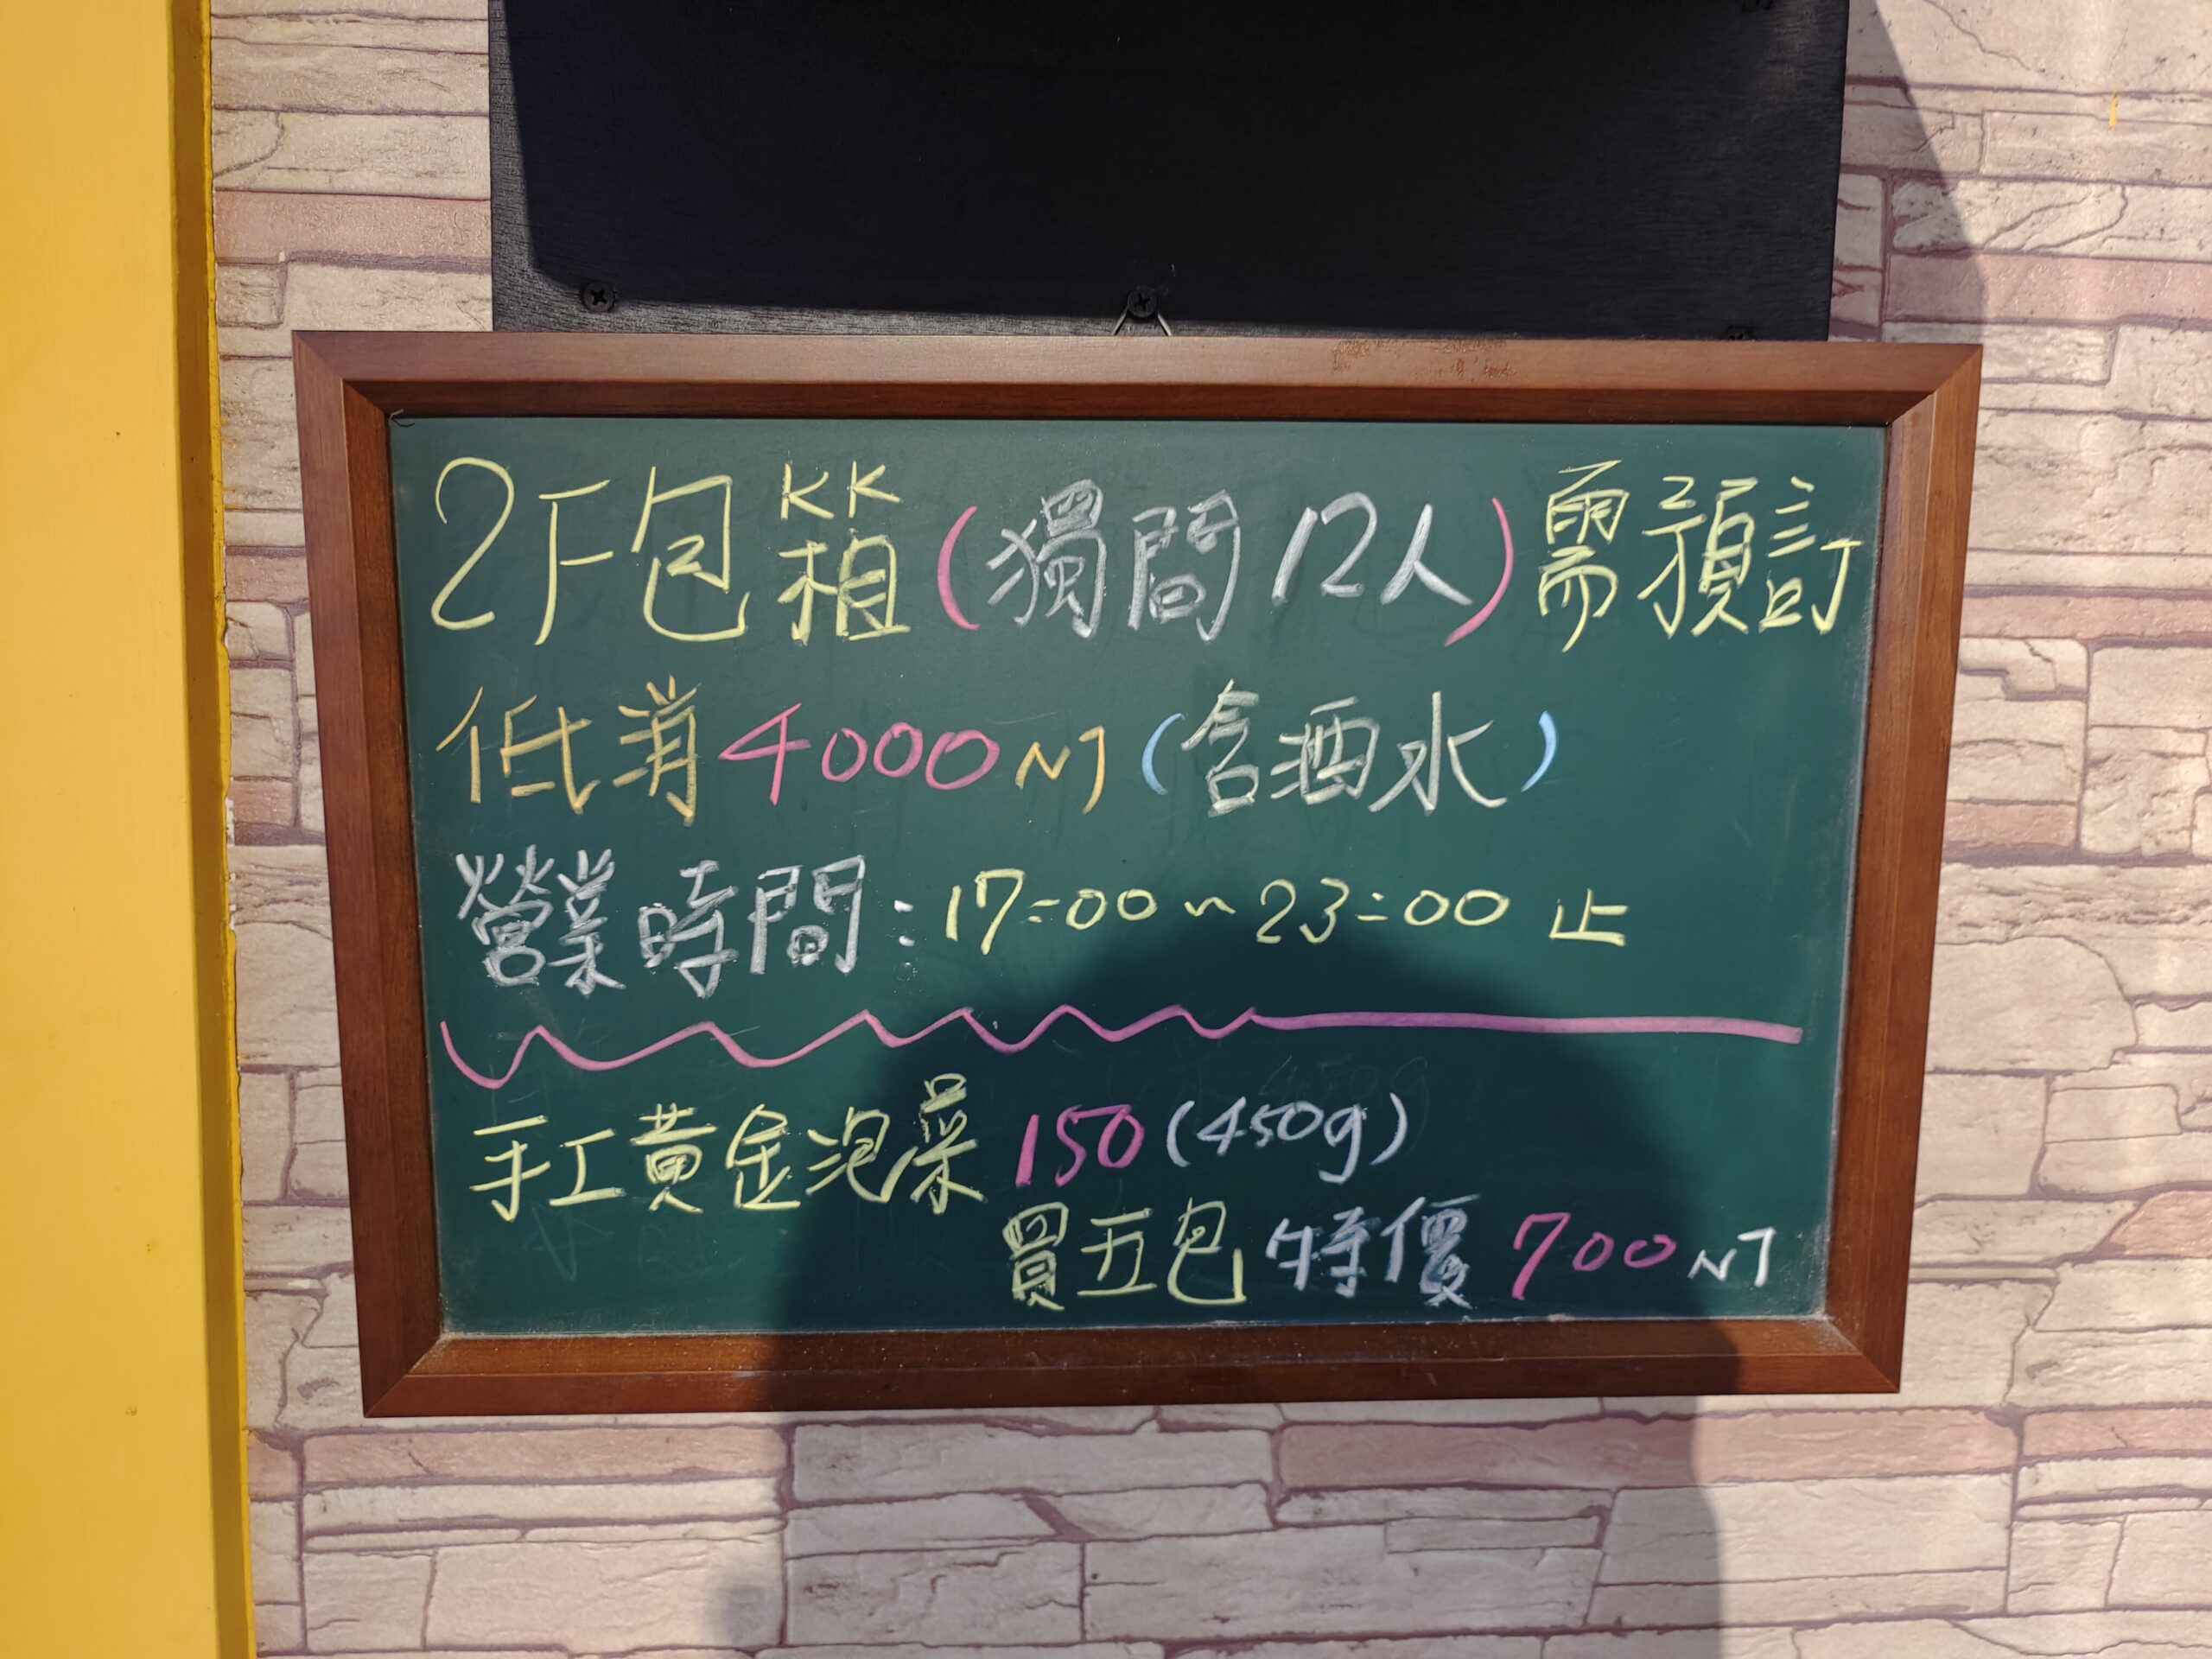 2F包箱(獨間12人)需預訂
低消4000NT(含酒水)
營業時間:17:00~23:00止
手工黃金泡菜 150(450g)
買五包 特價 700NT